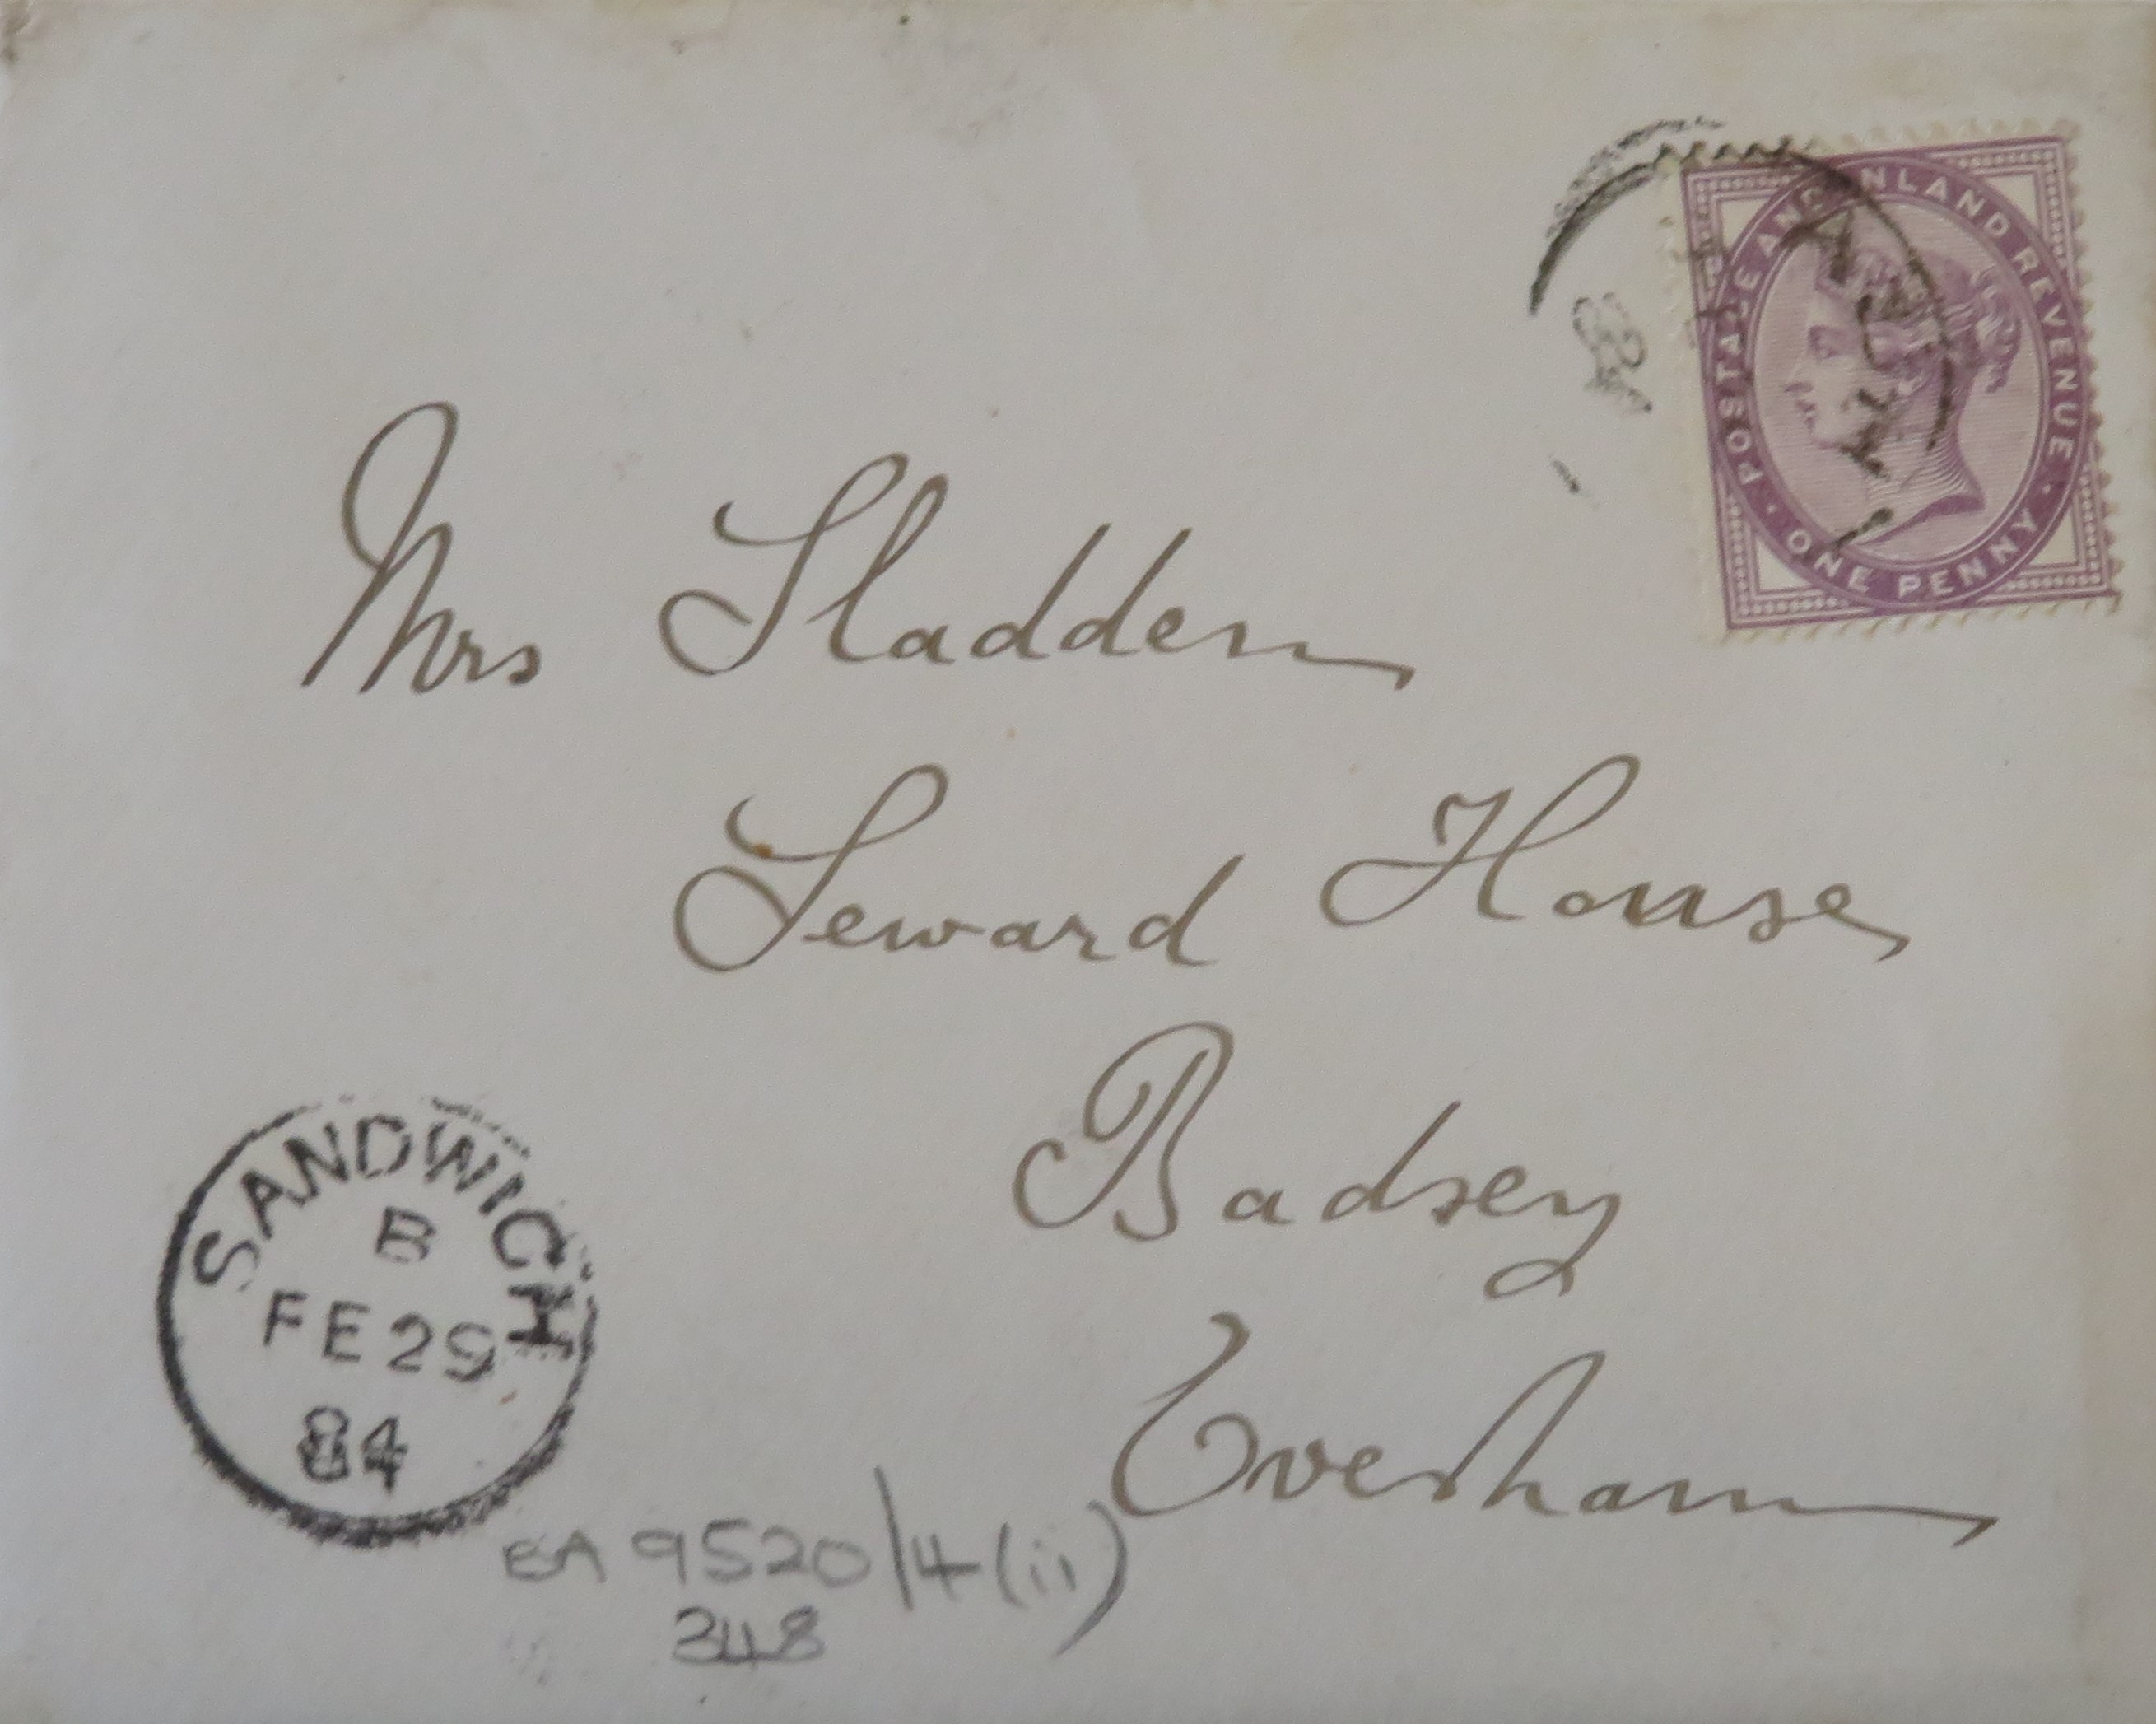 POSTAGE AND INLAND REVENUE · ONE PENNY ·
Mrs Sladden
Seward House
Badsey
Evesham
SANDWICH
B
FE 29
84
EA 9520/4(ii)
348